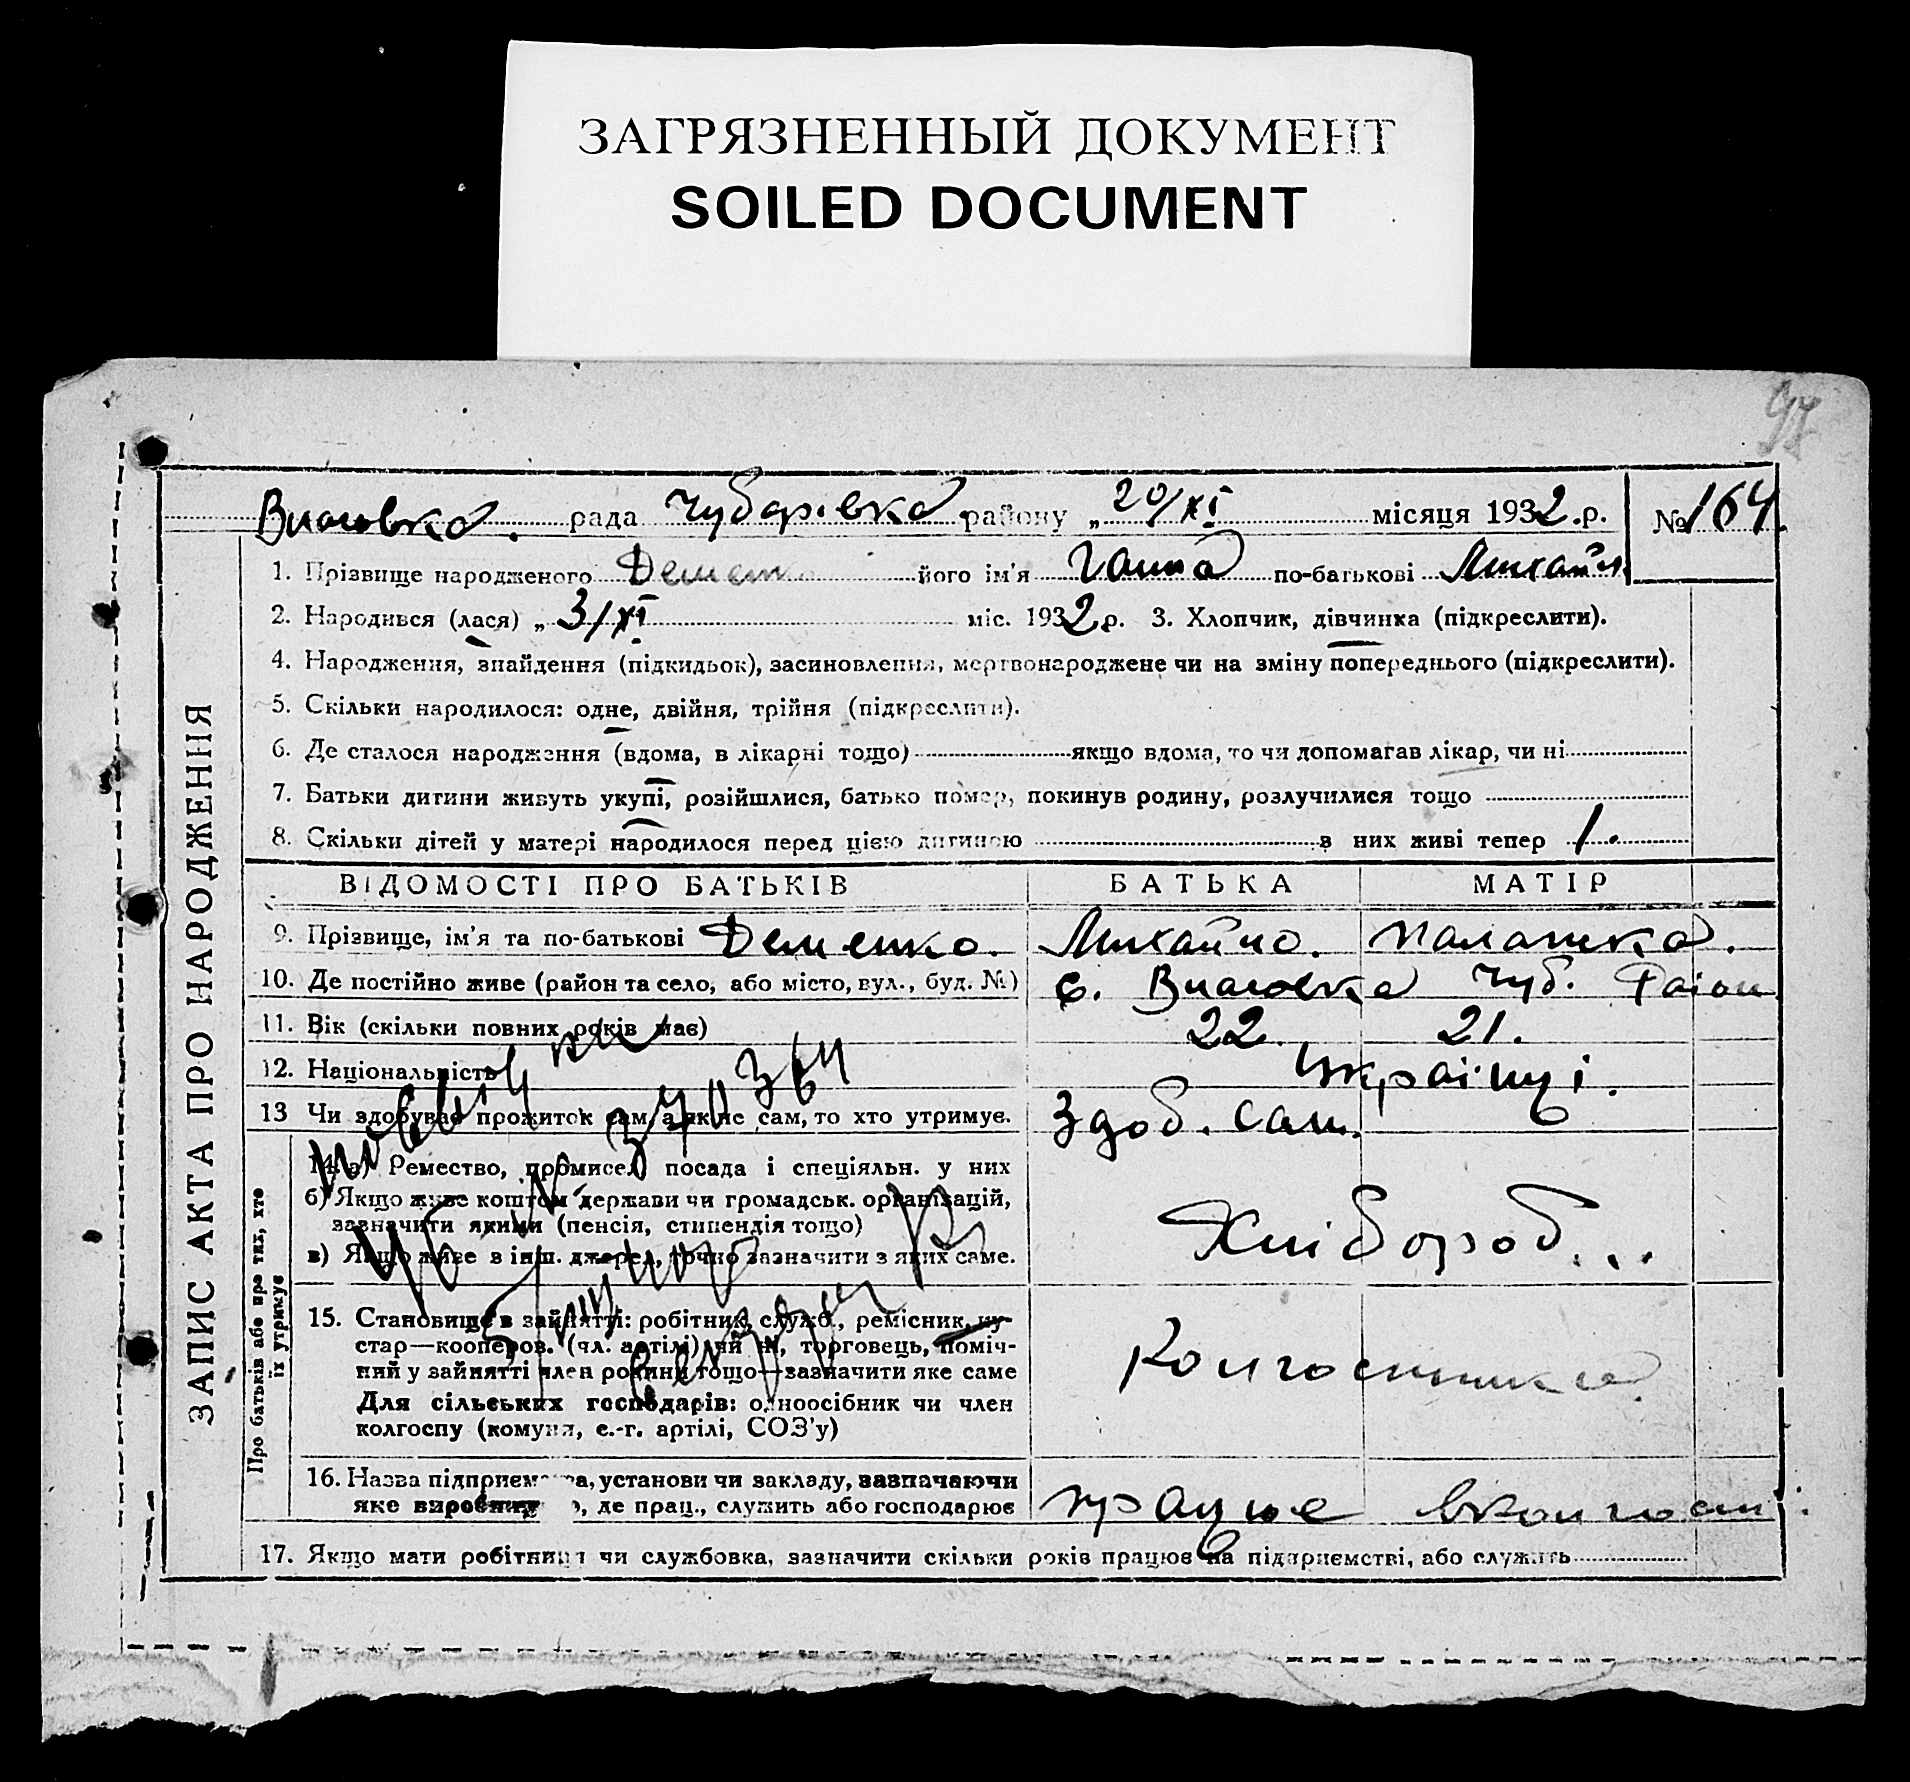 ЗАГРЯЗНЕННЫЙ ДОКУМЕНТ
SOILED DOCUMENT
97
ЗАПИС АКТА ПРО НАРОДЖЕННЯ
рада Чубарівка району „ 20/XI місяця 1932 .р. № 164.
1. Прізвище народженого Демен його ім'я Ганна по-батькові Михайл
2. Народився (лася) „ 3/XI міс. 1932 р. 3. Хлопчик, дівчинка (підкреслити).
4. Народження, знайдення (підкидьок), засиновлення, мертвонароджене чи на зміну попереднього (підкреслити).
5. Скільки народилося: одне, двійня, трійня (підкреслити).
6. Де сталося народження (вдома, в лікарні тощо) якщо вдома, то чи допомагав лікар, чи ні
7. Батьки дитини живуть укупі, розійшлися, батько помер, покинув родину, розлучилися тощо
8. Скільки дітей у матері народилося перед цією дитиною з них живі тепер 1.
ВІДОМОСТІ ПРО БАТЬКІВ БАТЬКА МАТІР
9. Прізвище, ім'я та по-батькові Деменко. Михайло. Палашка.
10. Де постійно живе (район та село, або місто, вул., буд. №) с. Чуб. Район
11. Вік (скільки повних років має) 22. 21.
12. Національність Українці.
13 Чи здобуває прожиток сам, а як не сам, то хто утримує. Здоб. сам.
Про батьків або про тих, хто їх утримує
14. а) Ремество, промисел, посада і спеціяльн. у них
б) Якщо живе коштом держави чи громадськ. організацій,
зазначити якими (пенсія, стипендія тощо)
в) Якщо живе в інш. джерел, точно зазначити з яких саме.
Хлібороб...
15. Становище в зайнятті: робітник, служб., ремісник, ку-
стар—кооперов. (чл. артілі) чи ні, торговець, поміч-
ний у зайнятті член родини тощо—зазначити яке саме
Для сільських господарів: одноосібник чи член
колгоспу (комуни, с.-г. артілі, СОЗ'у)
Колгоспники
16. Назва підприємства, установи чи закладу, зазначаючи
яке виробницт о, де прац., служить або господарює
працює вколгоспі
17. Якщо мати робітниця чи службовка, зазначити скільки років працює на підприємстві, або служить
370364